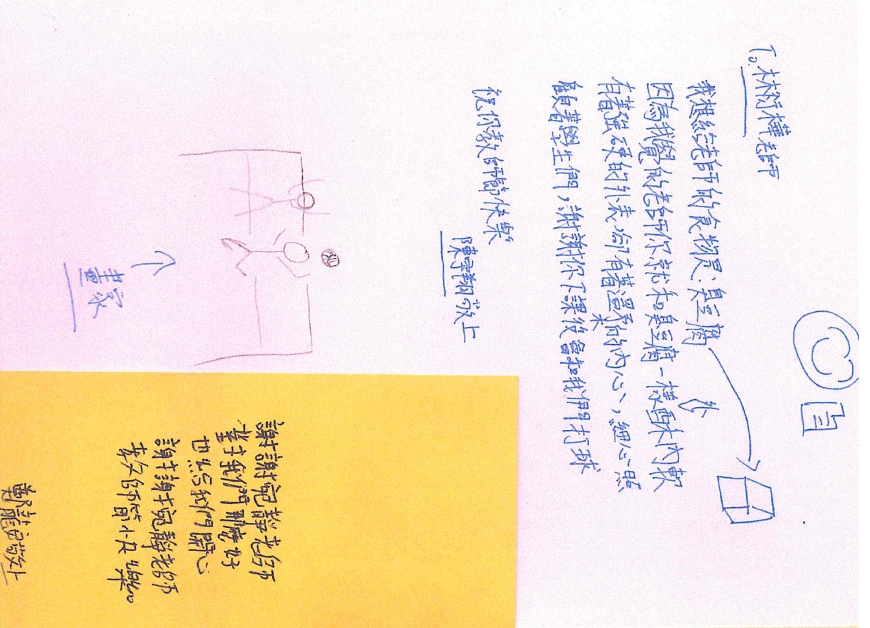 To. 林衍樺老師
我想給老師的食物是:臭豆腐
因為我覺的老師你就和臭豆腐一樣外酥內軟
有著強硬的外表,卻有著溫柔的內心,細心照
顧著學生們,謝謝你下課後會和我們打球
祝你教師節快樂
陳宇翔敬上
畫家
謝謝宛靜老師
對我們那麼好
也點心給我們開心
謝謝宛靜老師
教師節小快樂
敬上